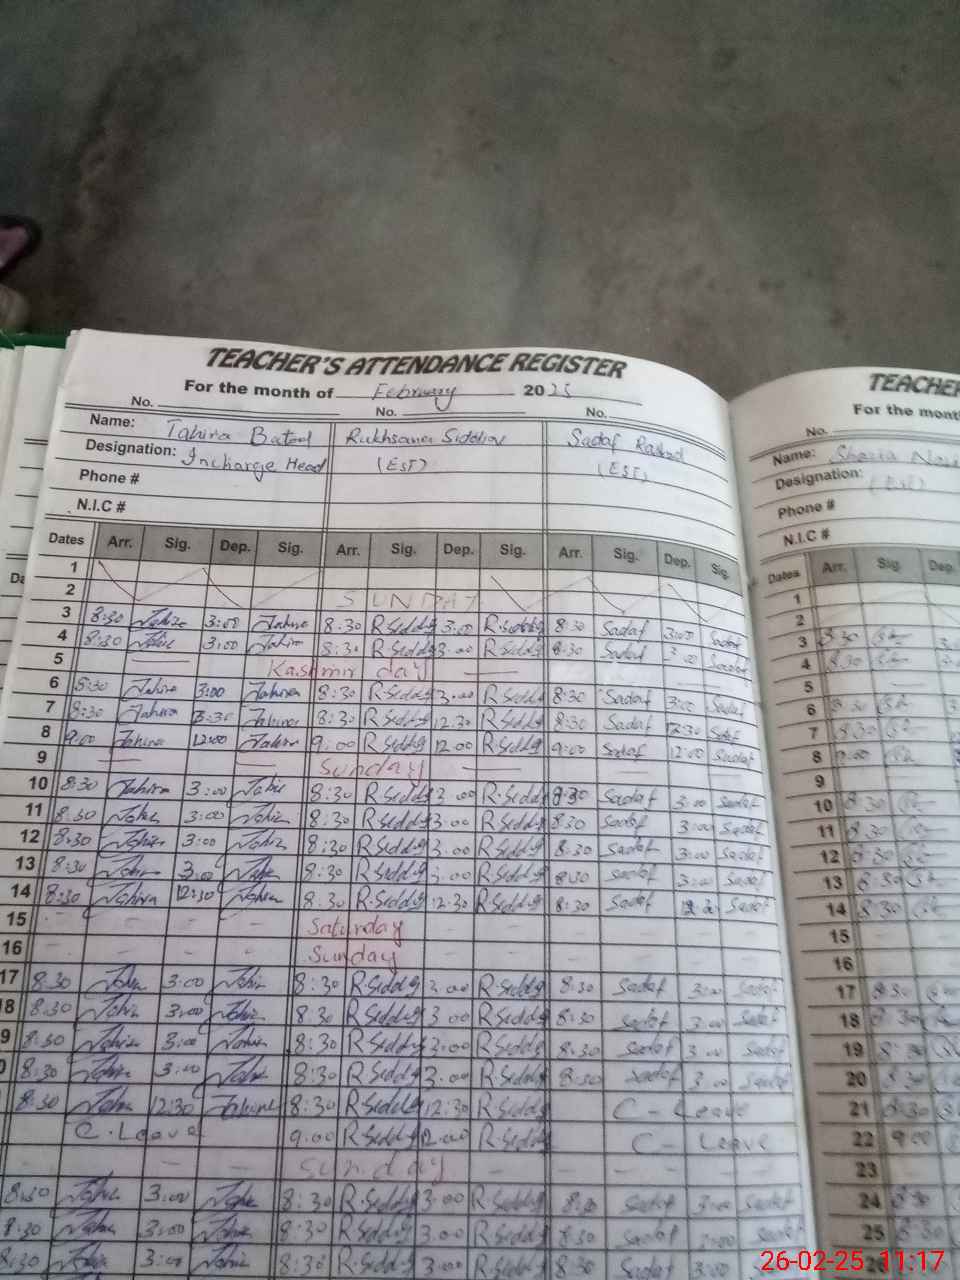 TEACHER'S ATTENDANCE REGISTER
For the month of February 2025
No. No. No.
Name: Tahira Batool Rukhsana Siddiqui Sadaf Rashid
Designation: Incharge Head (EST) (EST)
Phone #
N.I.C #
Dates Arr. Sig. Dep. Sig. Arr. Sig. Dep. Sig. Arr. Sig. Dep. Sig.
1
2 SUNDAY
3 8:30 Tahira 3:00 Tahira 8:30 R.Siddq 3:00 R.Siddq 8:30 Sadaf 3:00 Sadaf
4 8:30 Tahira 3:00 Tahira 8:30 R.Siddq 3:00 R.Siddq 8:30 Sadaf 3:00 Sadaf
5 Kashmir day
6 8:30 Tahira 3:00 Tahira 8:30 R.Siddq 3:00 R.Siddq 8:30 Sadaf 3:00 Sadaf
7 8:30 Tahira Tahira 8:30 R.Siddq 12:30 R.Siddq 8:30 Sadaf 12:30 Sadaf
8 9:00 Tahira 12:00 Tahira 9:00 R.Siddq 12:00 R.Siddq 9:00 Sadaf 12:00 Sadaf
9 Sunday
10 8:30 Tahira 3:00 Tahira 8:30 R.Siddq 3:00 R.Siddq 8:30 Sadaf 3:00 Sadaf
11 8:30 Tahira 3:00 Tahira 8:30 R.Siddq 3:00 R.Siddq 8:30 Sadaf 3:00 Sadaf
12 8:30 Tahira 3:00 Tahira 8:30 R.Siddq 3:00 R.Siddq 8:30 Sadaf 3:00 Sadaf
13 8:30 Tahira 3:00 Tahira 8:30 R.Siddq 3:00 R.Siddq 8:30 Sadaf 3:00 Sadaf
14 8:30 Tahira 12:30 Tahira 8:30 R.Siddq 12:30 R.Siddq 8:30 Sadaf 12:30 Sadaf
15 Saturday
16 Sunday
17 8:30 Tahira 3:00 Tahira 8:30 R.Siddq 3:00 R.Siddq 8:30 Sadaf 3:00 Sadaf
18 8:30 Tahira 3:00 Tahira 8:30 R.Siddq 3:00 R.Siddq 8:30 Sadaf 3:00 Sadaf
9 8:30 Tahira 3:00 Tahira 8:30 R.Siddq 3:00 R.Siddq 8:30 Sadaf 3:00 Sadaf
0 8:30 Tahira 3:00 Tahira 8:30 R.Siddq 3:00 R.Siddq 8:30 Sadaf 3:00 Sadaf
8:30 Tahira 12:30 Tahira 8:30 R.Siddq 12:30 R.Siddq C-Leave
C.Leave 9:00 R.Siddq 12:00 R.Siddq C-Leave
Sunday
8:30 Tahira 3:00 Tahira 8:30 R.Siddq 3:00 R.Siddq 8:30 Sadaf 3:00 Sadaf
8:30 Tahira 3:00 Tahira 8:30 R.Siddq 3:00 R.Siddq 8:30 Sadaf 3:00 Sadaf
8:30 Tahira 3:00 Tahira 8:30 R.Siddq 3:00 R.Siddq 8:30 Sadaf 3:00 Sadaf
TEACHER
For the month
No.
Name: Shazia
Designation: (EST)
Phone #
N.I.C #
Dates Arr. Sig. Dep.
1
2
3 8:30
4 8:30
5
6 8:30
7 8:30
8 9:00
9
10 8:30
11 8:30
12 8:30
13 8:30
14 8:30
15
16
17 8:30
18 8:30
19 8:30
20 8:30
21 8:30
22 9:00
23
24 8:30
25 8:30
26
26-02-25 11:17